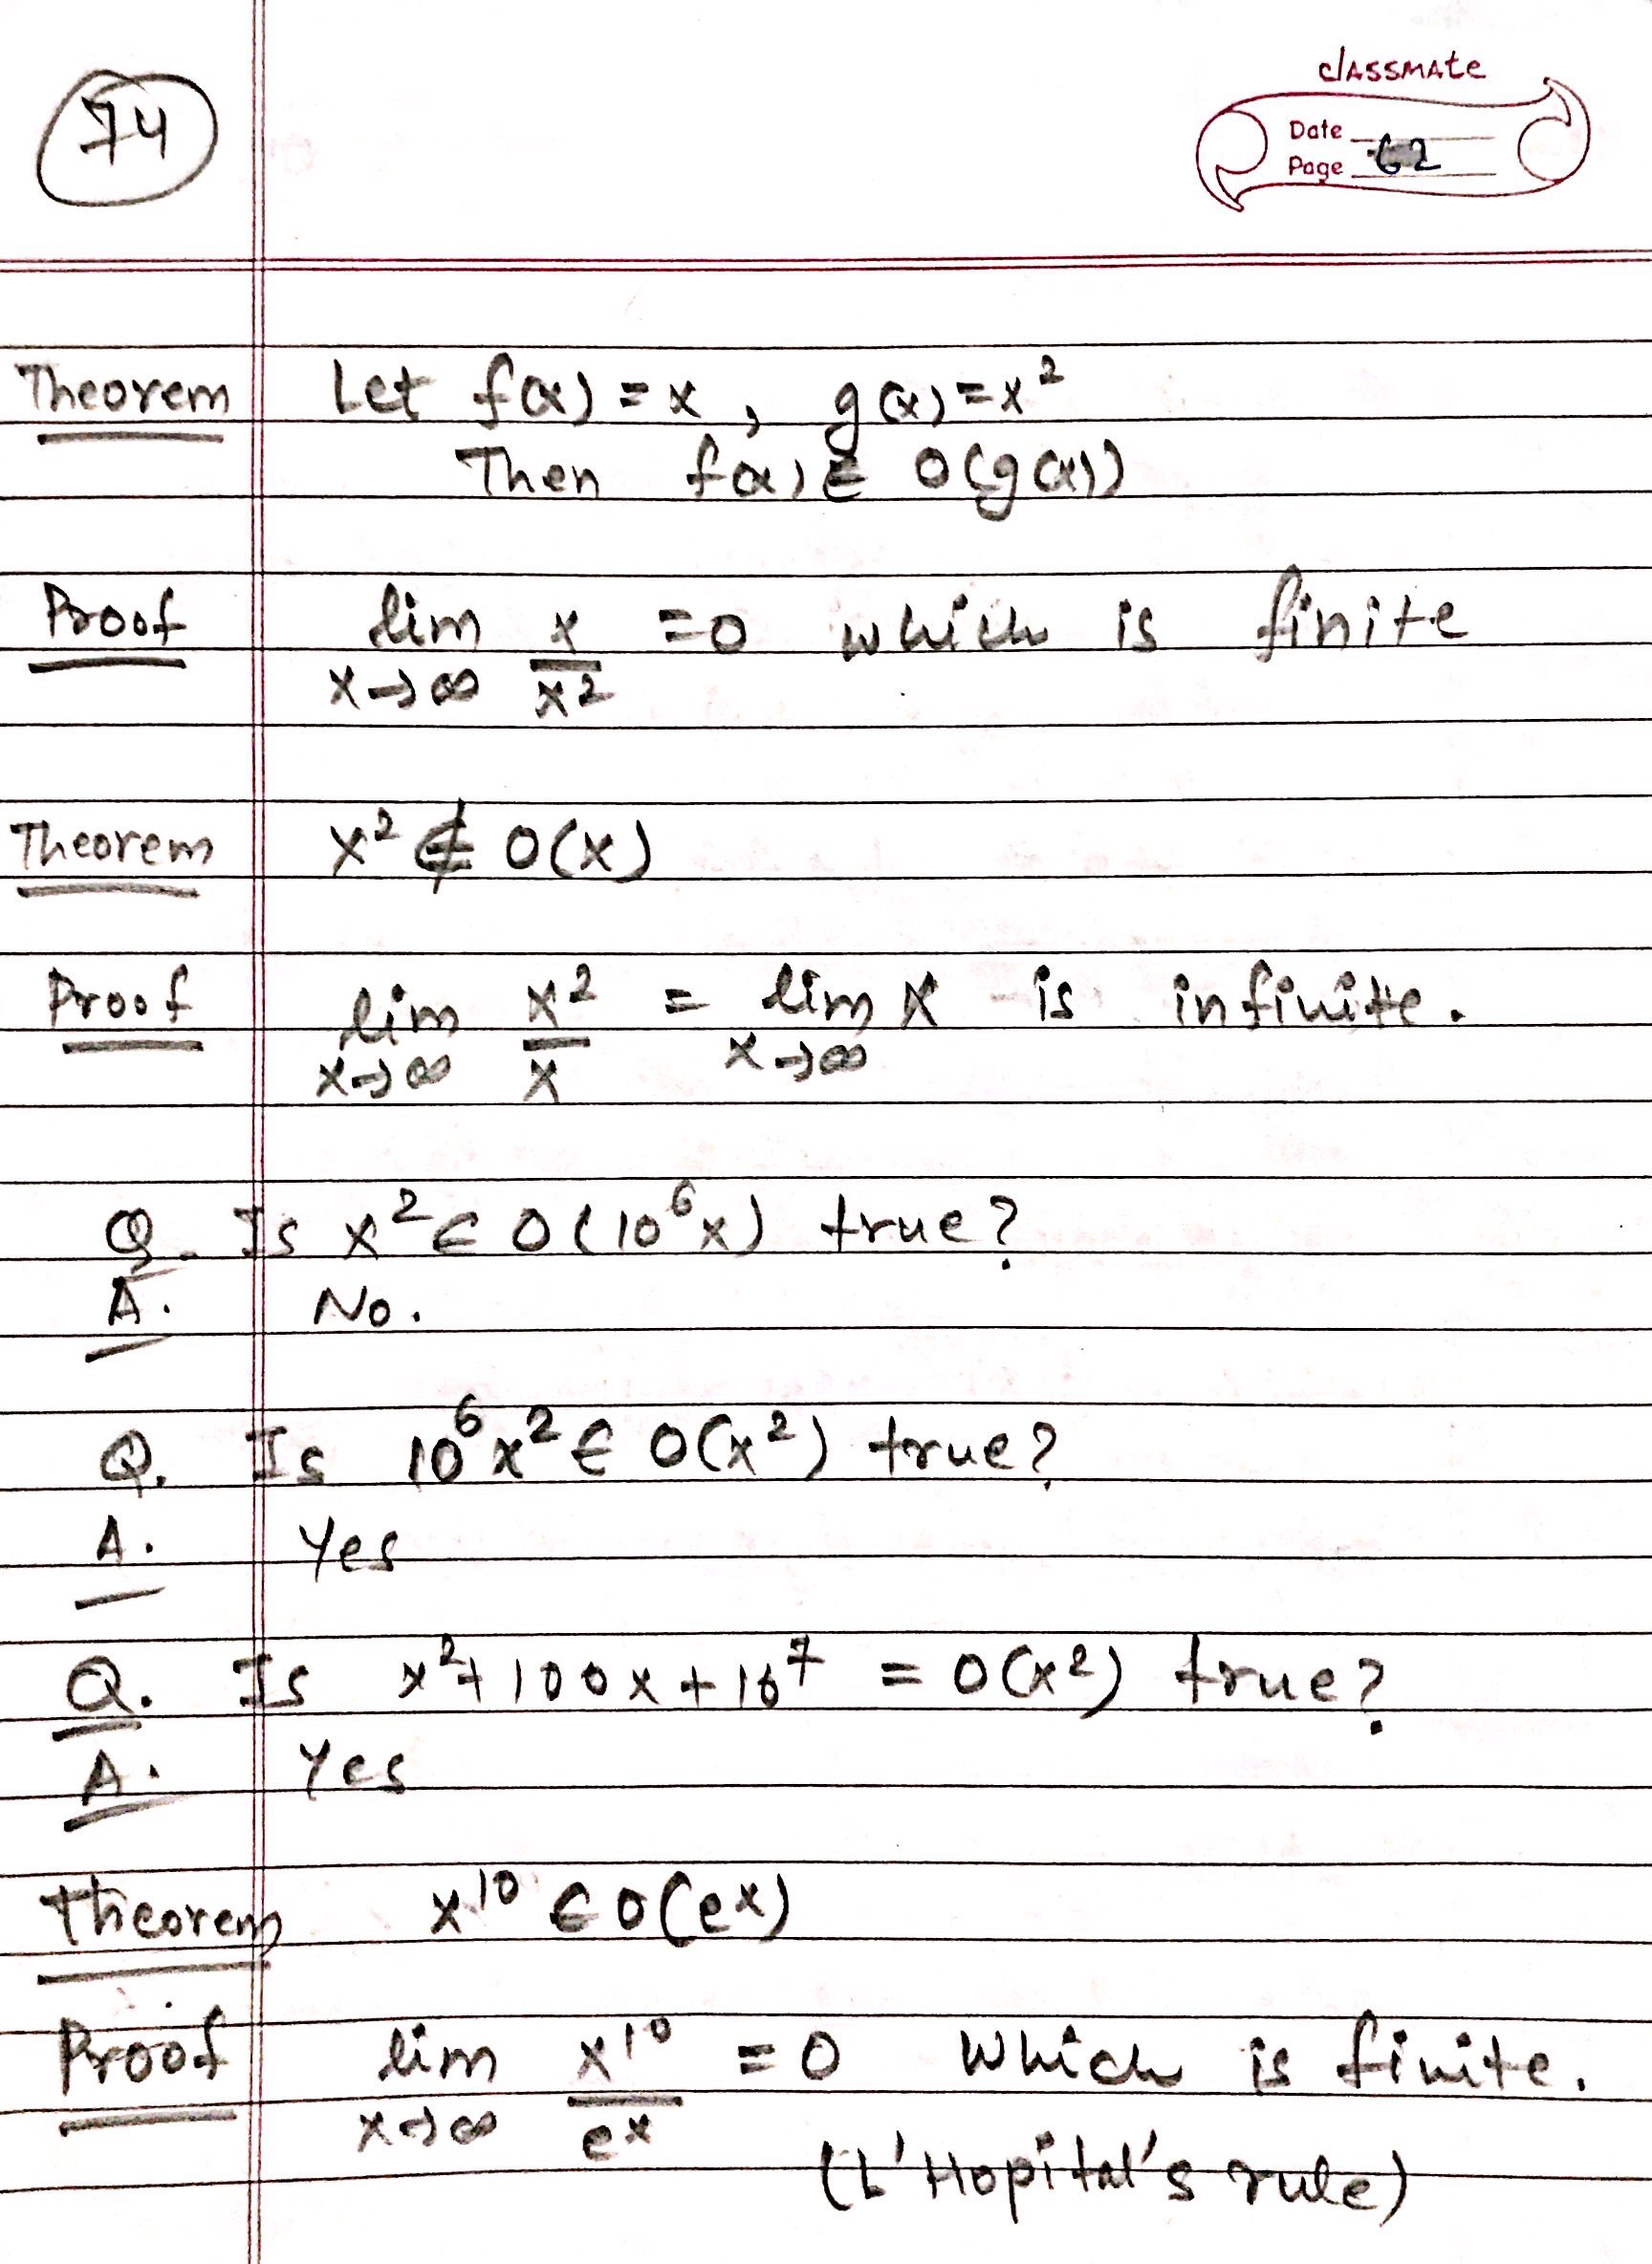 74
classmate
Date
Page 62
Theorem Let f(x) = x, g(x) = x²
Then f(x) ∈ O(g(x))
Proof lim x→∞ x/x² = 0 which is finite
Theorem x² ∉ O(x)
Proof lim x→∞ x²/x = lim x→∞ x is infinite.
Q. Is x² ∈ O(10⁶x) true?
A. No.
Q. Is 10⁶x² ∈ O(x²) true?
A. Yes
Q. Is x² + 100x + 10⁷ = O(x²) true?
A. Yes
Theorem x¹⁰ ∈ O(eˣ)
Proof lim x→∞ x¹⁰/eˣ = 0 Which is finite.
(L'Hopital's rule)